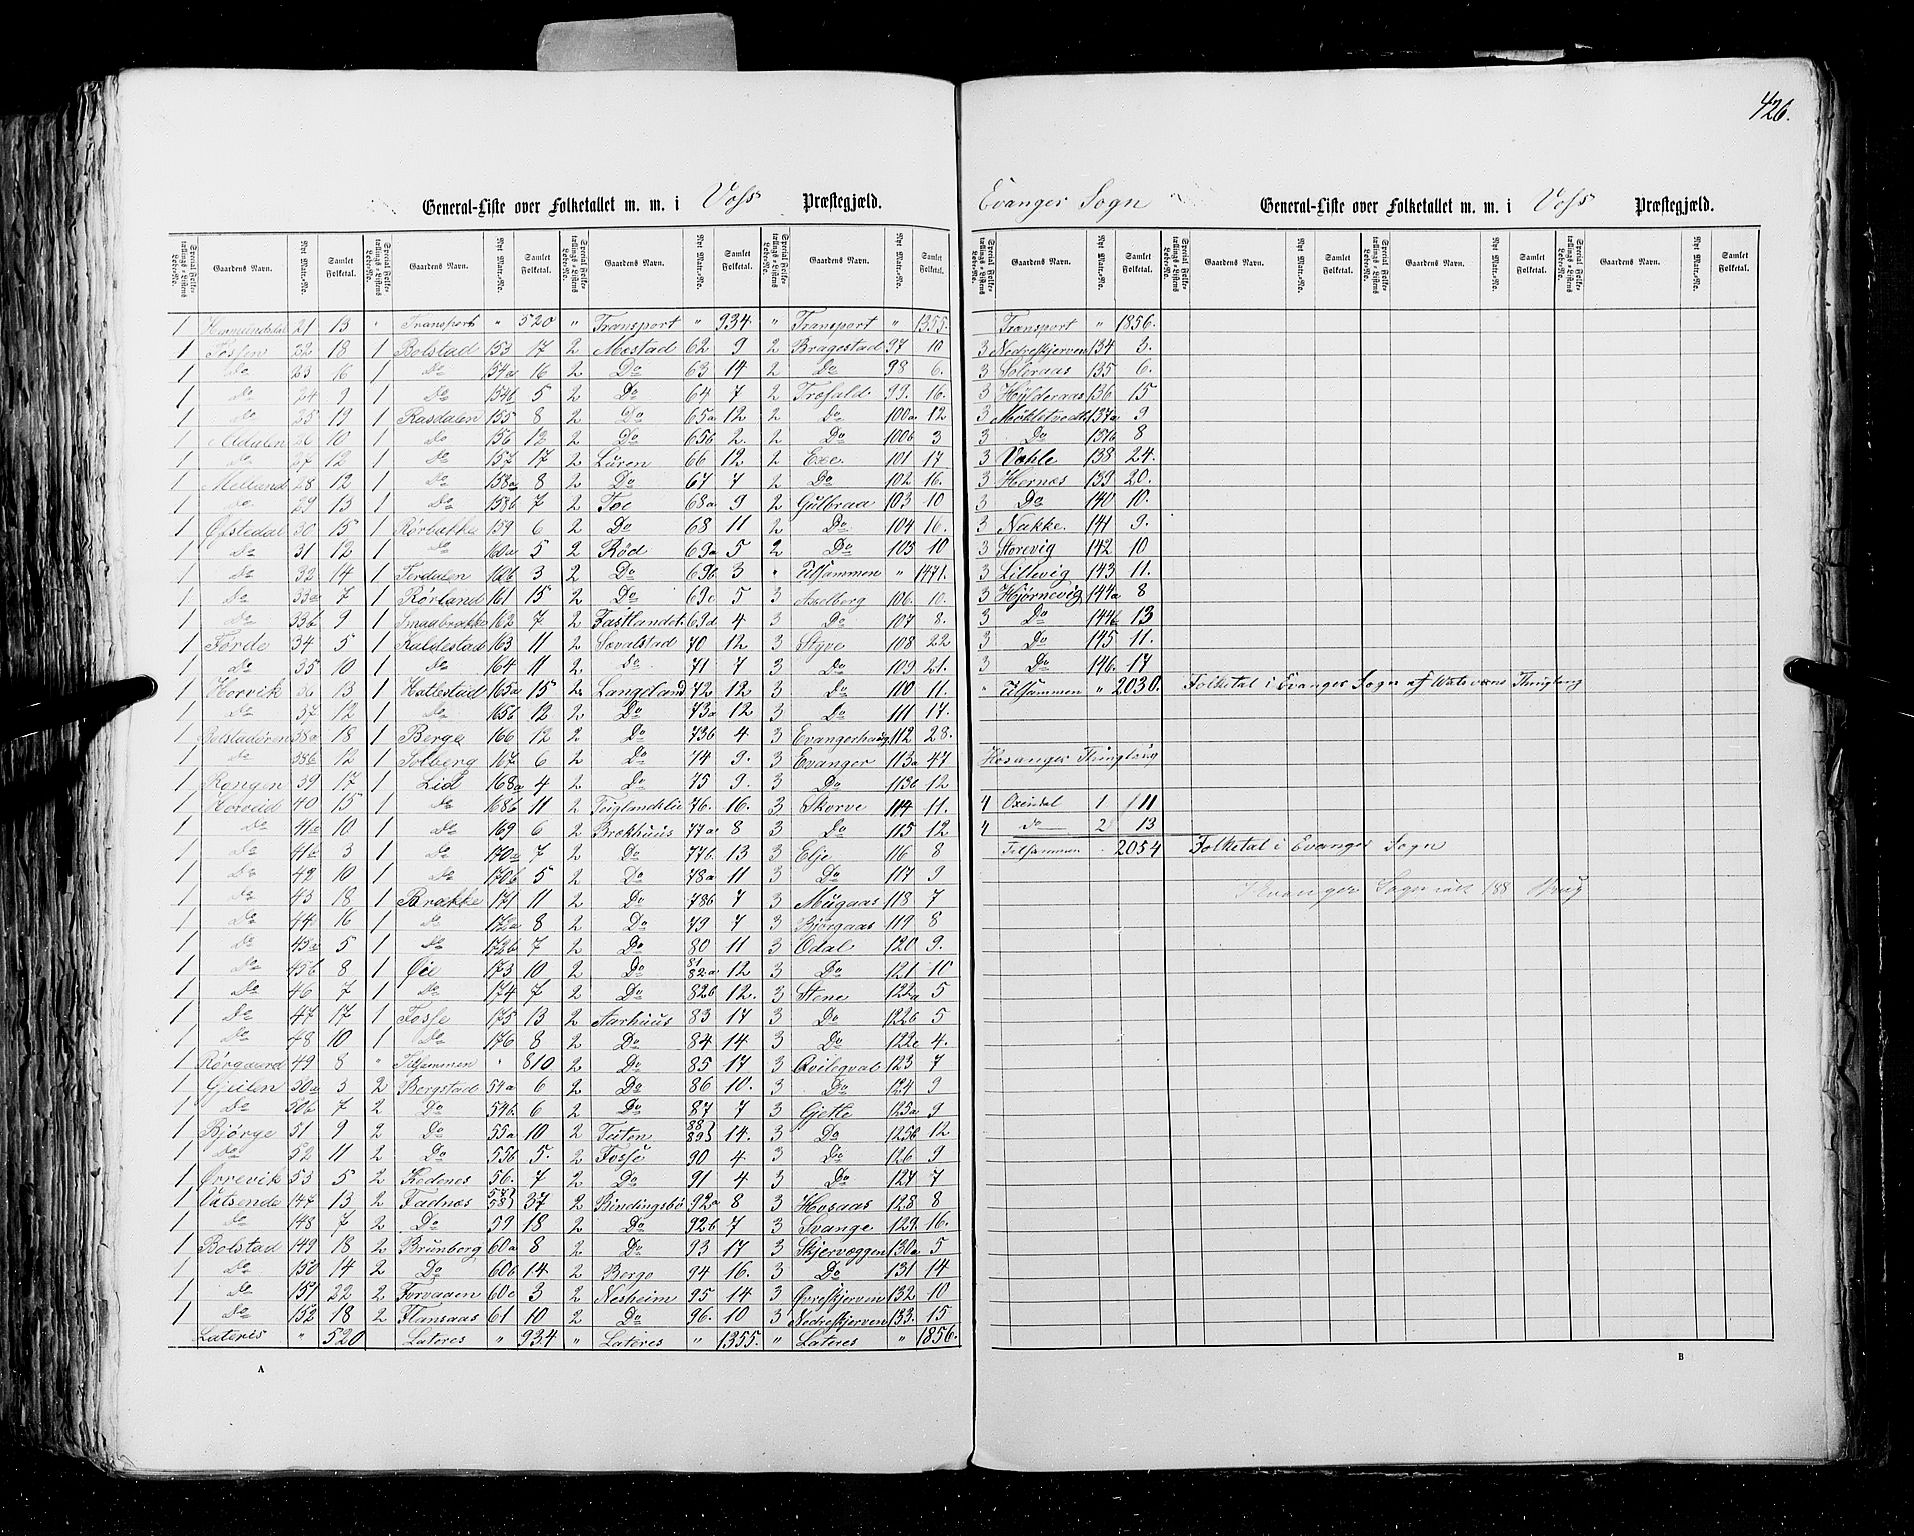 426.
General-Liste over Folketallet m. m. i Voss Præstegjæld.
Evanger Sogn General-Liste over Folketallet m. m. i Voss Præstegjæld.
Special Folketællings-Listens Løbe-No. Gaardens Navn. Nyt Matr.-No. Samlet Folketal. Special Folketællings-Listens Løbe-No. Gaardens Navn. Nyt Matr.-No. Samlet Folketal. Special Folketællings-Listens Løbe-No. Gaardens Navn. Nyt Matr.-No. Samlet Folketal. Special Folketællings-Listens Løbe-No. Gaardens Navn. Nyt Matr.-No. Samlet Folketal.
1 21 13 " Transport " 520 " Transport " 934. " Transport " 1355.
1 Fosfen 22 18 1 Bolstad 153 17 2 Mestad 62 9 2 Bragestad 97 10
1 Do 23 16 1 Do 154a 16 2 Do 63 14 2 Do 98 6.
1 Do 24 9 1 Do 154b 5 2 Do 64 7 2 Trefald 99. 16.
1 Do 25 19 1 Rasdalen 155 8 2 Do 65a 12 2 Do 100a 12
1 26 10 1 Do 156 12 2 Do 65b 2. 2 Do 100b 3
1 Do 27 12 1 Do 157 17 2 Lüren 66 12 2 Exe. 101 17
1 Melland 28 12 1 Do 158a 8 2 Do 67 7 2 Do 102 16.
1 Do 29 13 1 Do 158b 7 2 Foe 68a 9 2 Gülbraa 103 10
1 Øfstedal 30 15 1 Rörbakke 159 6 2 Do 68 11 2 Do 104 16.
1 Do 31 12 1 Do 160a 5 2 Rød 69a 5 2 Do 105 10
1 Do 32 14 1 160b 3 2 Do 69b 3 " Tilsammen " 1471.
1 Do 33a 7 1 Rørland 161 15 2 Do 69c 5 3 Asselberg 106. 10.
1 Do 33b 9 1 Smaabrække 162 7 2 Fastlandet 69d 4 3 Do 107 8.
1 Førde 34 5 1 Kaldestad 163 11 2 Sævalstad 70 12 3 Styve 108 22
1 Do 35 10 1 Do 164 11 2 Do 71 7 3 Do 109 21.
1 Horvik 36 13 1 Hallestad 165a 15 2 Langeland 72 12 3 Do 110 11.
1 Do 37 12 1 Do 165b 12 2 Do 73a 12 3 Do 111 17.
1 Bolstadøren 38a 18 1 Berge 166 12 2 Do 73b 4 3 Evangerhaug 112 28.
1 Do 38b 12 1 Solberg 167 6 2 Do 74 9. 3 Evanger 113a 47
1 Rongen 39 17 1 Lid 168a 4 2 Do 75 9. 3 Do 113b 12
1 Horveid 40 15 1 Do 168b 11 2 Teiglandslie 76. 16. 3 Skorve 114 11.
1 Do 41a 10 1 Do 169 6 2 Brækhuus 77a 8 3 Do 115 12
1 Do 41b 3 1 Do 170a 7 2 Do 77b. 13 3 Elje 116 8
1 Do 42 10 1 Do 170b 5 2 Do 78a 11 3 Do 117 9
1 Do 43 18 1 Brakke 171 11 2 Do 78b 7 3 Mügaas 118 7
1 Do 44 16 1 Do 172a 8 2 Do 79 7 3 Bjørgaas 119 8
1 Do 45a 5 1 Do 172b 7 2 Do 80 11 3 Odal 120 9.
1 Do 45b 8 1 Øie 173 10 2 Do 81 82a 12 3 Do 121 10
1 Do 46 7 1 Do 174 7 2 Do 82b 12. 3 Stene 122a 5
1 Do 47 17 1 Fosse 175 13 2 Aarhuus 83 17 3 Do 122b 5
1 Do 48 10 1 Do 176 8 2 Do 84 14 3 Do 122c 4.
1 Rørgaard 49 8 " Tilsammen " 810 2 Do 85 17 3 Qvilegval 123 7
1 Gjeilen 50a 5 2 Bergstad 54a 6 2 Do 86 10. 3 Do 124 9
1 Do 50b 7 2 Do 54b 6 2 Do 87 7 3 Gjette 125a 9
1 Bjørge 51 9 2 Do 55a 10 2 Teiten 88 89 14. 3 Do 125b 12
1 Do 52 11 2 Do 55b 5. 2 Fosse 90 4 3 Do 126 9
1 Ørrevik 53 5 2 Kedenes 56. 7 2 Do 91 4 3 Do 127 7
1 Vatsende 147 13 2 Fadnæs 57 58 37 2 Bindingsbø 92a 8 3 Hovaas 128 8
1 Do 148 7 2 Do 59 18 2 Do 92b 7 3 Svange 129. 16.
1 Bolstad 149 18 2 Brunborg 60a 8 2 Do 93 17 3 Skjervæggen 130a 5
1 Do 150 14 2 Do 60b 14 2 Berge 94 16. 3 Do 131 14
1 Do 151 22 2 Forvaaen 60c 3 2 Nesheim 95 14 3 Øvreskjerven 132 10
1 Do 152 18 2 Flansaas 61 10 2 Do 96. 10 3 Nedreskjerven 133. 15
Lateres " 520 Lateres " 934 " Lateres " 1355. " Lateres " 1856.
A
Special Folketællings-Listens Løbe-No. Gaardens Navn. Nyt Matr.-No. Samlet Folketal. Special Folketællings-Listens Løbe-No. Gaardens Navn. Nyt Matr.-No. Samlet Folketal. Special Folketællings-Listens Løbe-No. Gaardens Navn. Nyt Matr.-No. Samlet Folketal. Special Folketællings-Listens Løbe-No. Gaardens Navn. Nyt Matr.-No. Samlet Folketal.
Transport " 1856.
3 Nedreskjerven 134 3.
3 Soleraas 135 6.
3 Hylderaas 136 15
3 Mokletvedt 137a 9
3 Do 137b 8
3 Vahle 138 24.
3 Hernes 139 20.
3 Do 140 10.
3 Nakke. 141 9.
3 Storevig 142 10
3 Lillevig 143 11.
3 Hjørnevig 144a 8
3 Do 144b 13
3 Do 145 11.
3 Do 146. 17
" Tilsammen " 2030. Folketal i Evanger Sogn af Thinglaug
Hosanger Thinglaug
4 Oxendal 1 11
4 Do 2 13
Tilsammen . 2054 Folketal i Evanger Sogn
I Evanger Sogn 188 Brug
B